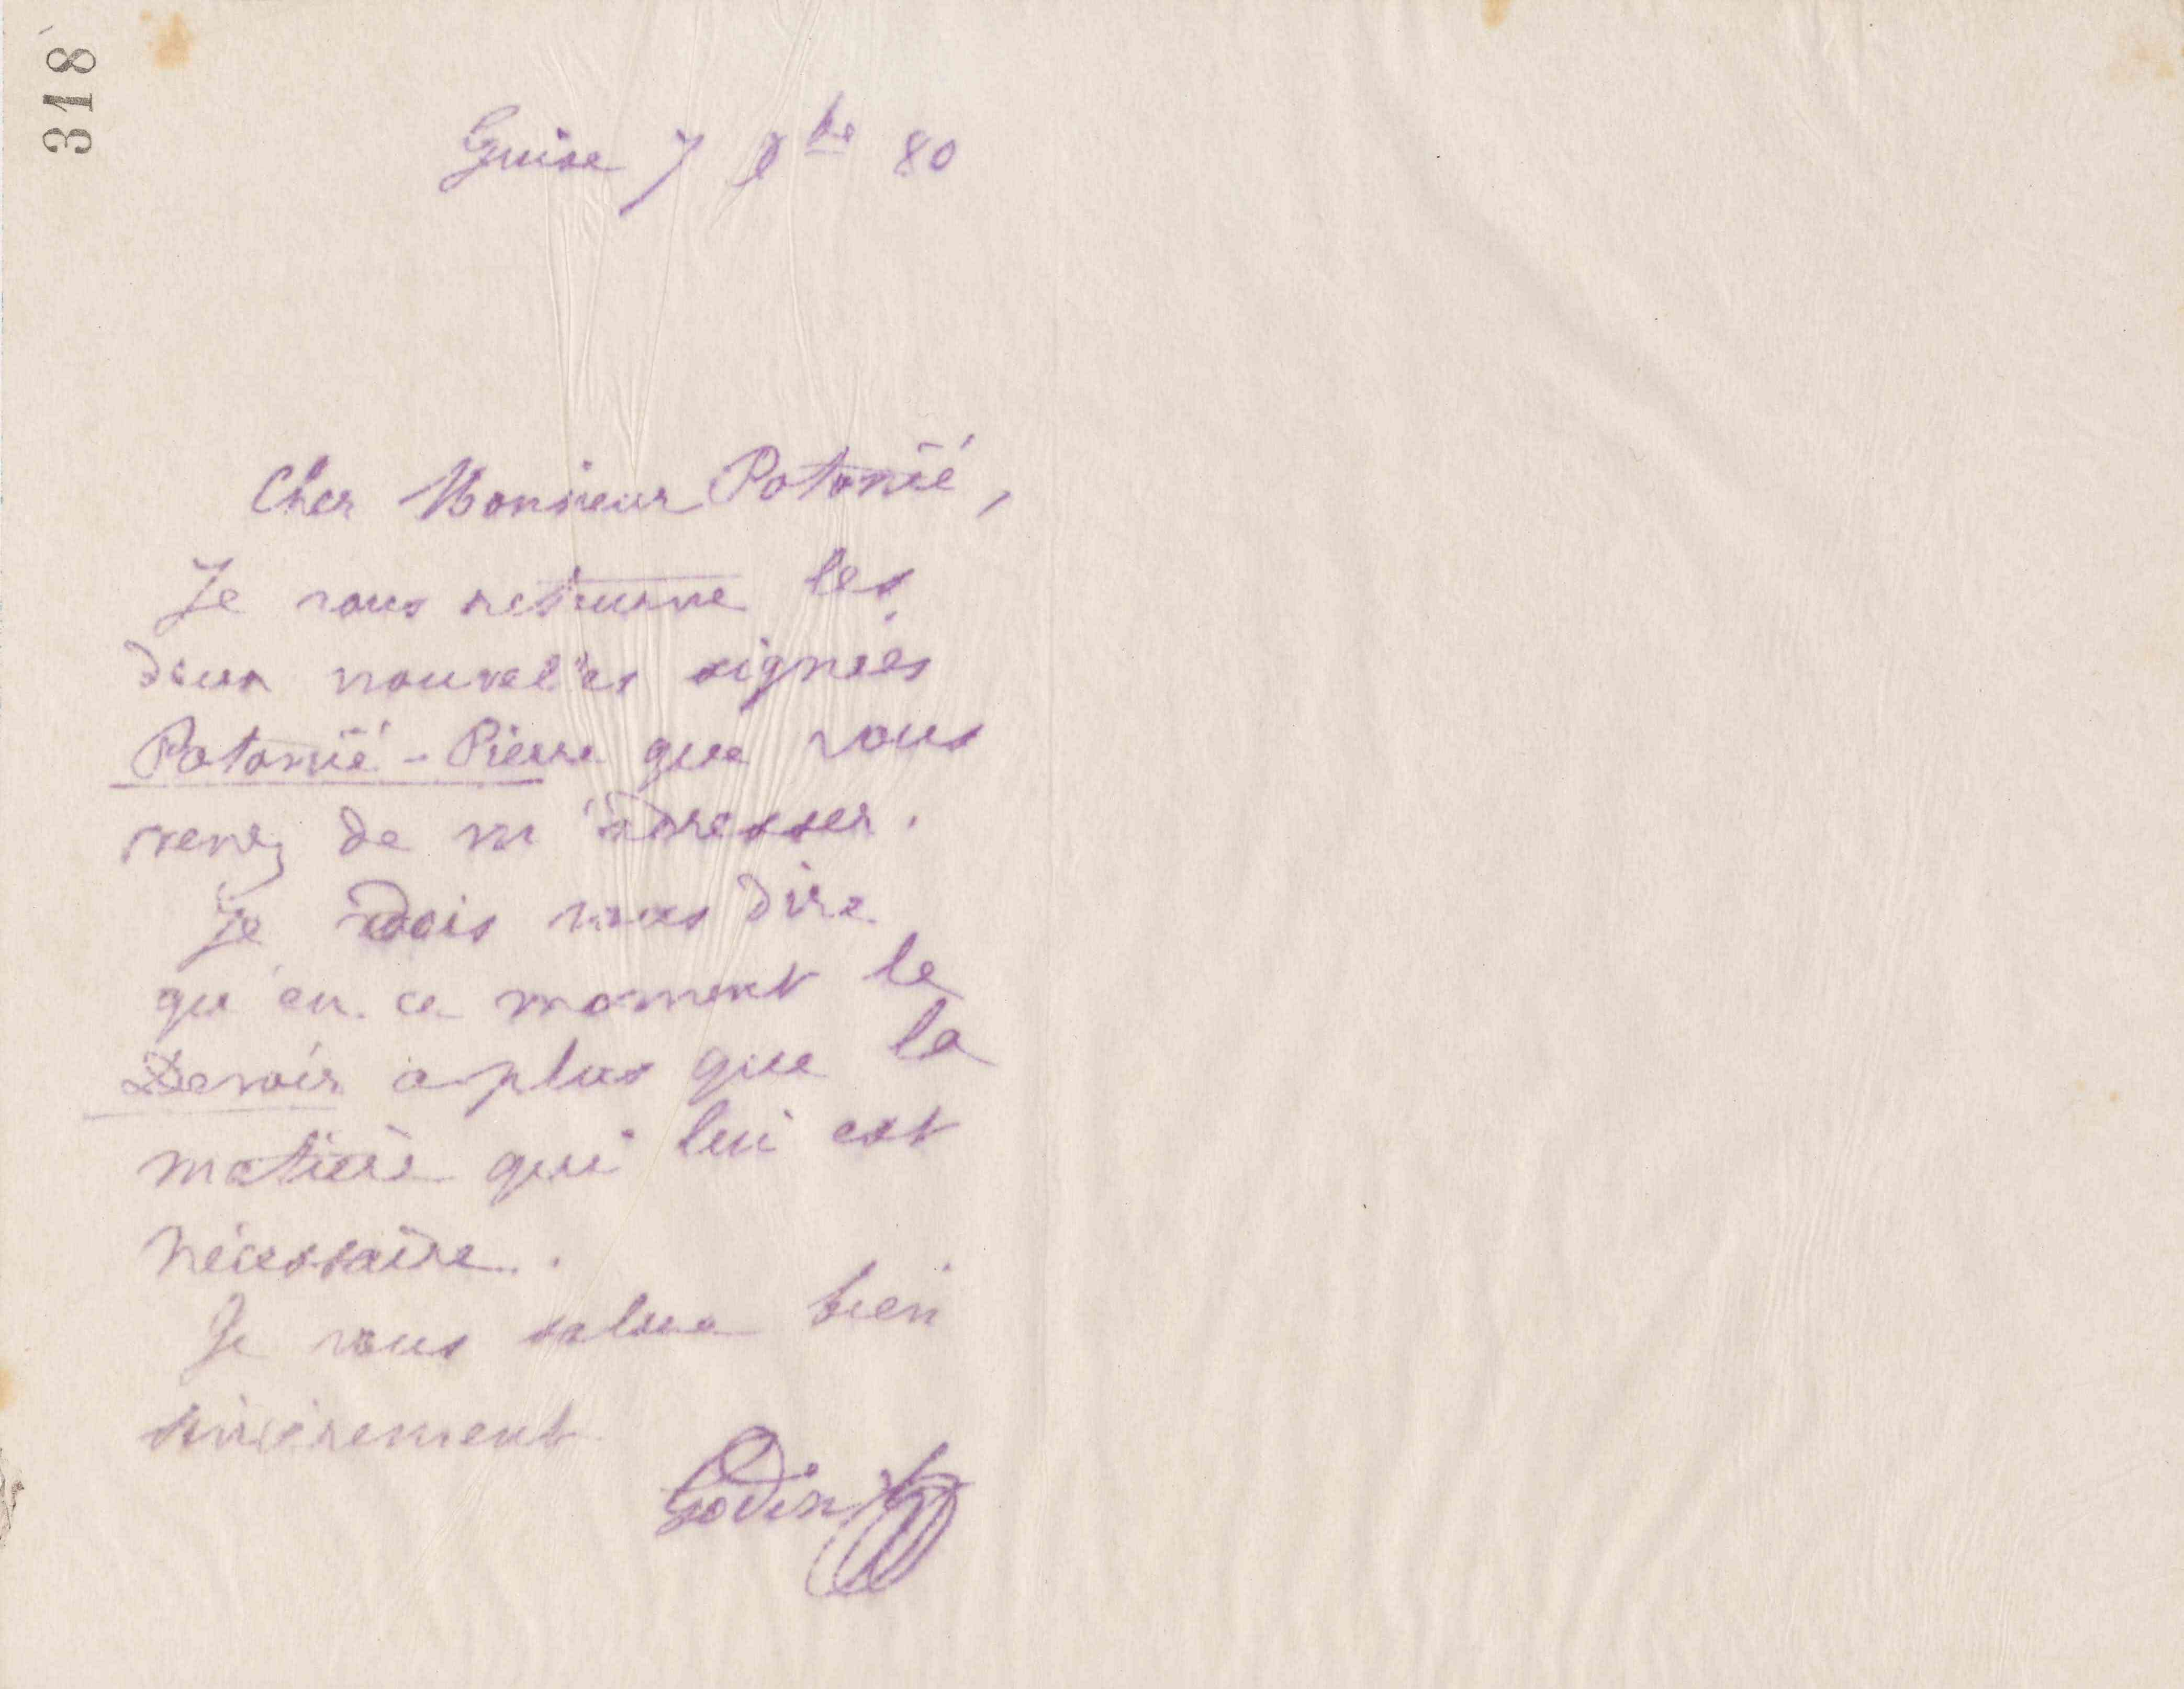 318
Guise 7 9bre 80
Cher Monsieur Potonié,
Je vous retourne les
deux nouvelles signées
Potonié-Pierre que vous
venez de m'adresser.
Je dois vous dire
qu'en ce moment le
Devoir a plus que la
matière qui lui est
nécessaire.
Je vous salue bien
sincèrement
Godin